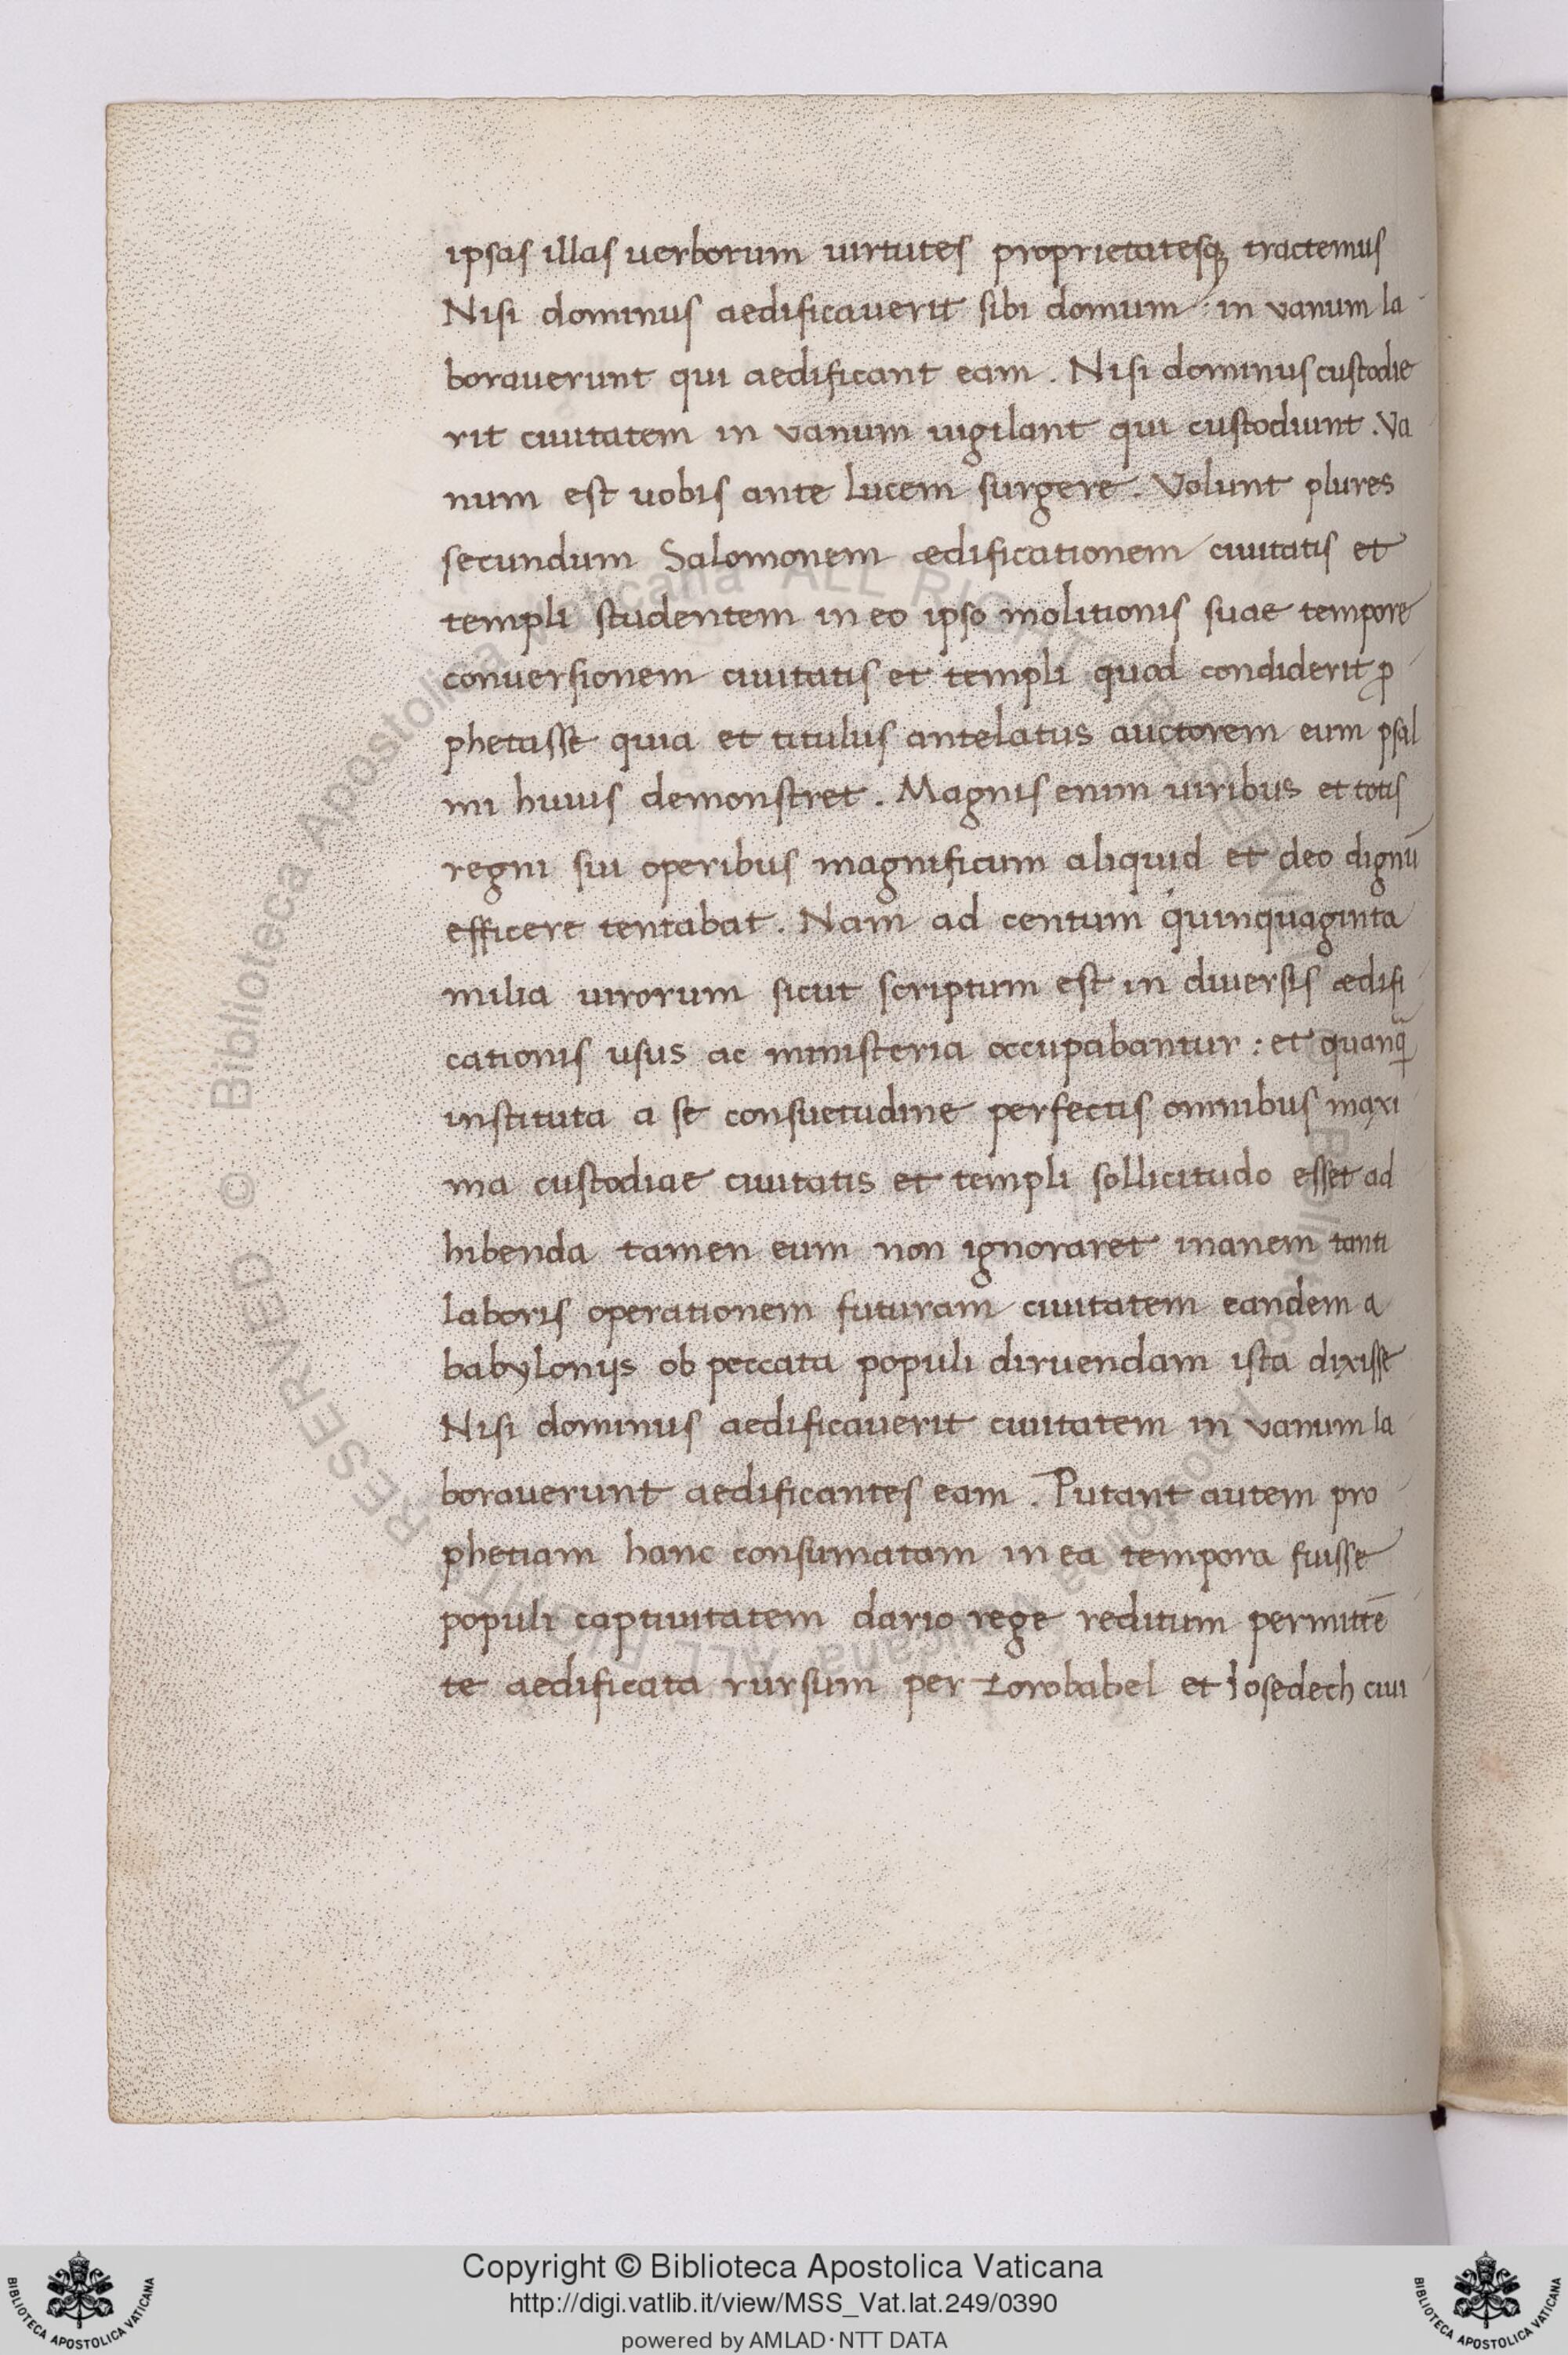 ipsas illas uerborum uirtutes proprietatesq; tractemus
Nisi dominus aedificauerit sibi domum : in vanum la
borauerunt qui aedificant eam . Nisi dominus custodie
rit ciuitatem in vanum uigilant qui custodiunt . Va
num est uobis ante lucem surgere . Volunt plures
secundum Salomonem ædificationem ciuitatis et
templi studentem in eo ipso molitionis suae tempore
conuersionem ciuitatis et templi quod condiderit ꝓ
phetasse quia et titulus antelatus auctorem eum psal
mi huius demonstret . Magnis enim uiribus et totis
regni sui operibus magnificum aliquid et deo dignū
efficere tentabat . Nam ad centum quinquaginta
milia uirorum sicut scriptum est in diuersis ædifi
cationis usus ac ministeria occupabantur : et quanq̄
instituta a se consuetudine perfectis omnibus maxi
ma custodiae ciuitatis et templi sollicitudo esset ad
hibenda tamen eum non ignoraret inanem tanti
laboris operationem futuram ciuitatem eandem a
babylonijs ob peccata populi diruendam ista dixisse
Nisi dominus aedificauerit ciuitatem in vanum la
borauerunt aedificantes eam . Putant autem pro
phetiam hanc consumatam in ea tempora fuisse
populi captiuitatem dario rege reditum permittē
te aedificata rursum per zorobabel et Iosedech ciui
Copyright © Biblioteca Apostolica Vaticana
http://digi.vatlib.it/view/MSS_Vat.lat.249/0390
powered by AMLAD·NTT DATA
BIBLIOTECA APOSTOLICA VATICANA
BIBLIOTECA APOSTOLICA VATICANA